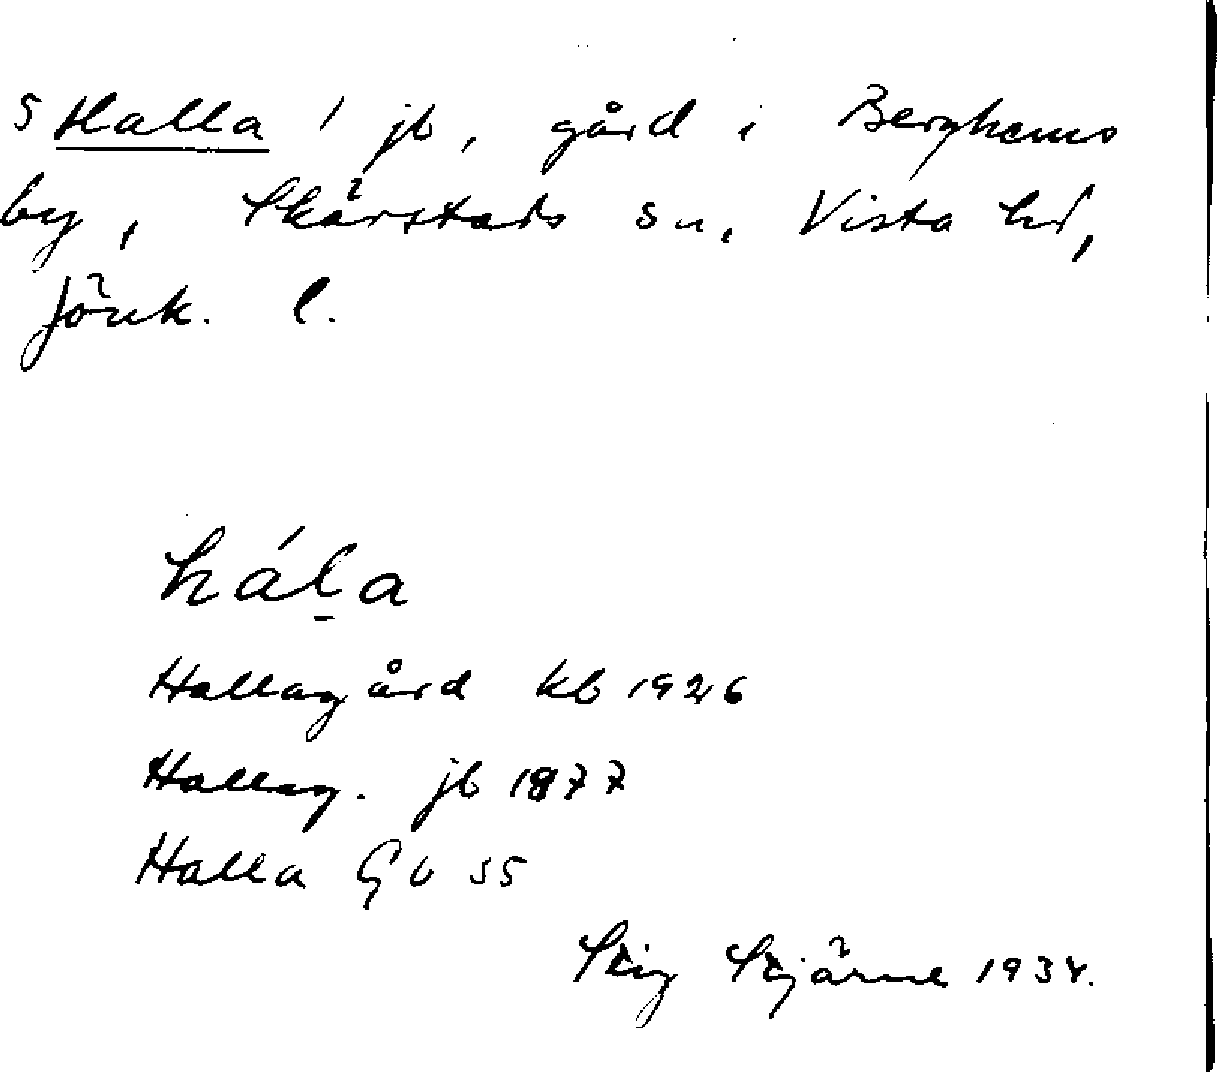 5 Halla / jb, gård i Berghems
by, Skärstads sn, Vista hd,
Jönk. l.
hál̠a
Hallagård kb 1926
Hallag. jb 1877
Halla Gb 55
Stig Stjärne 1934.